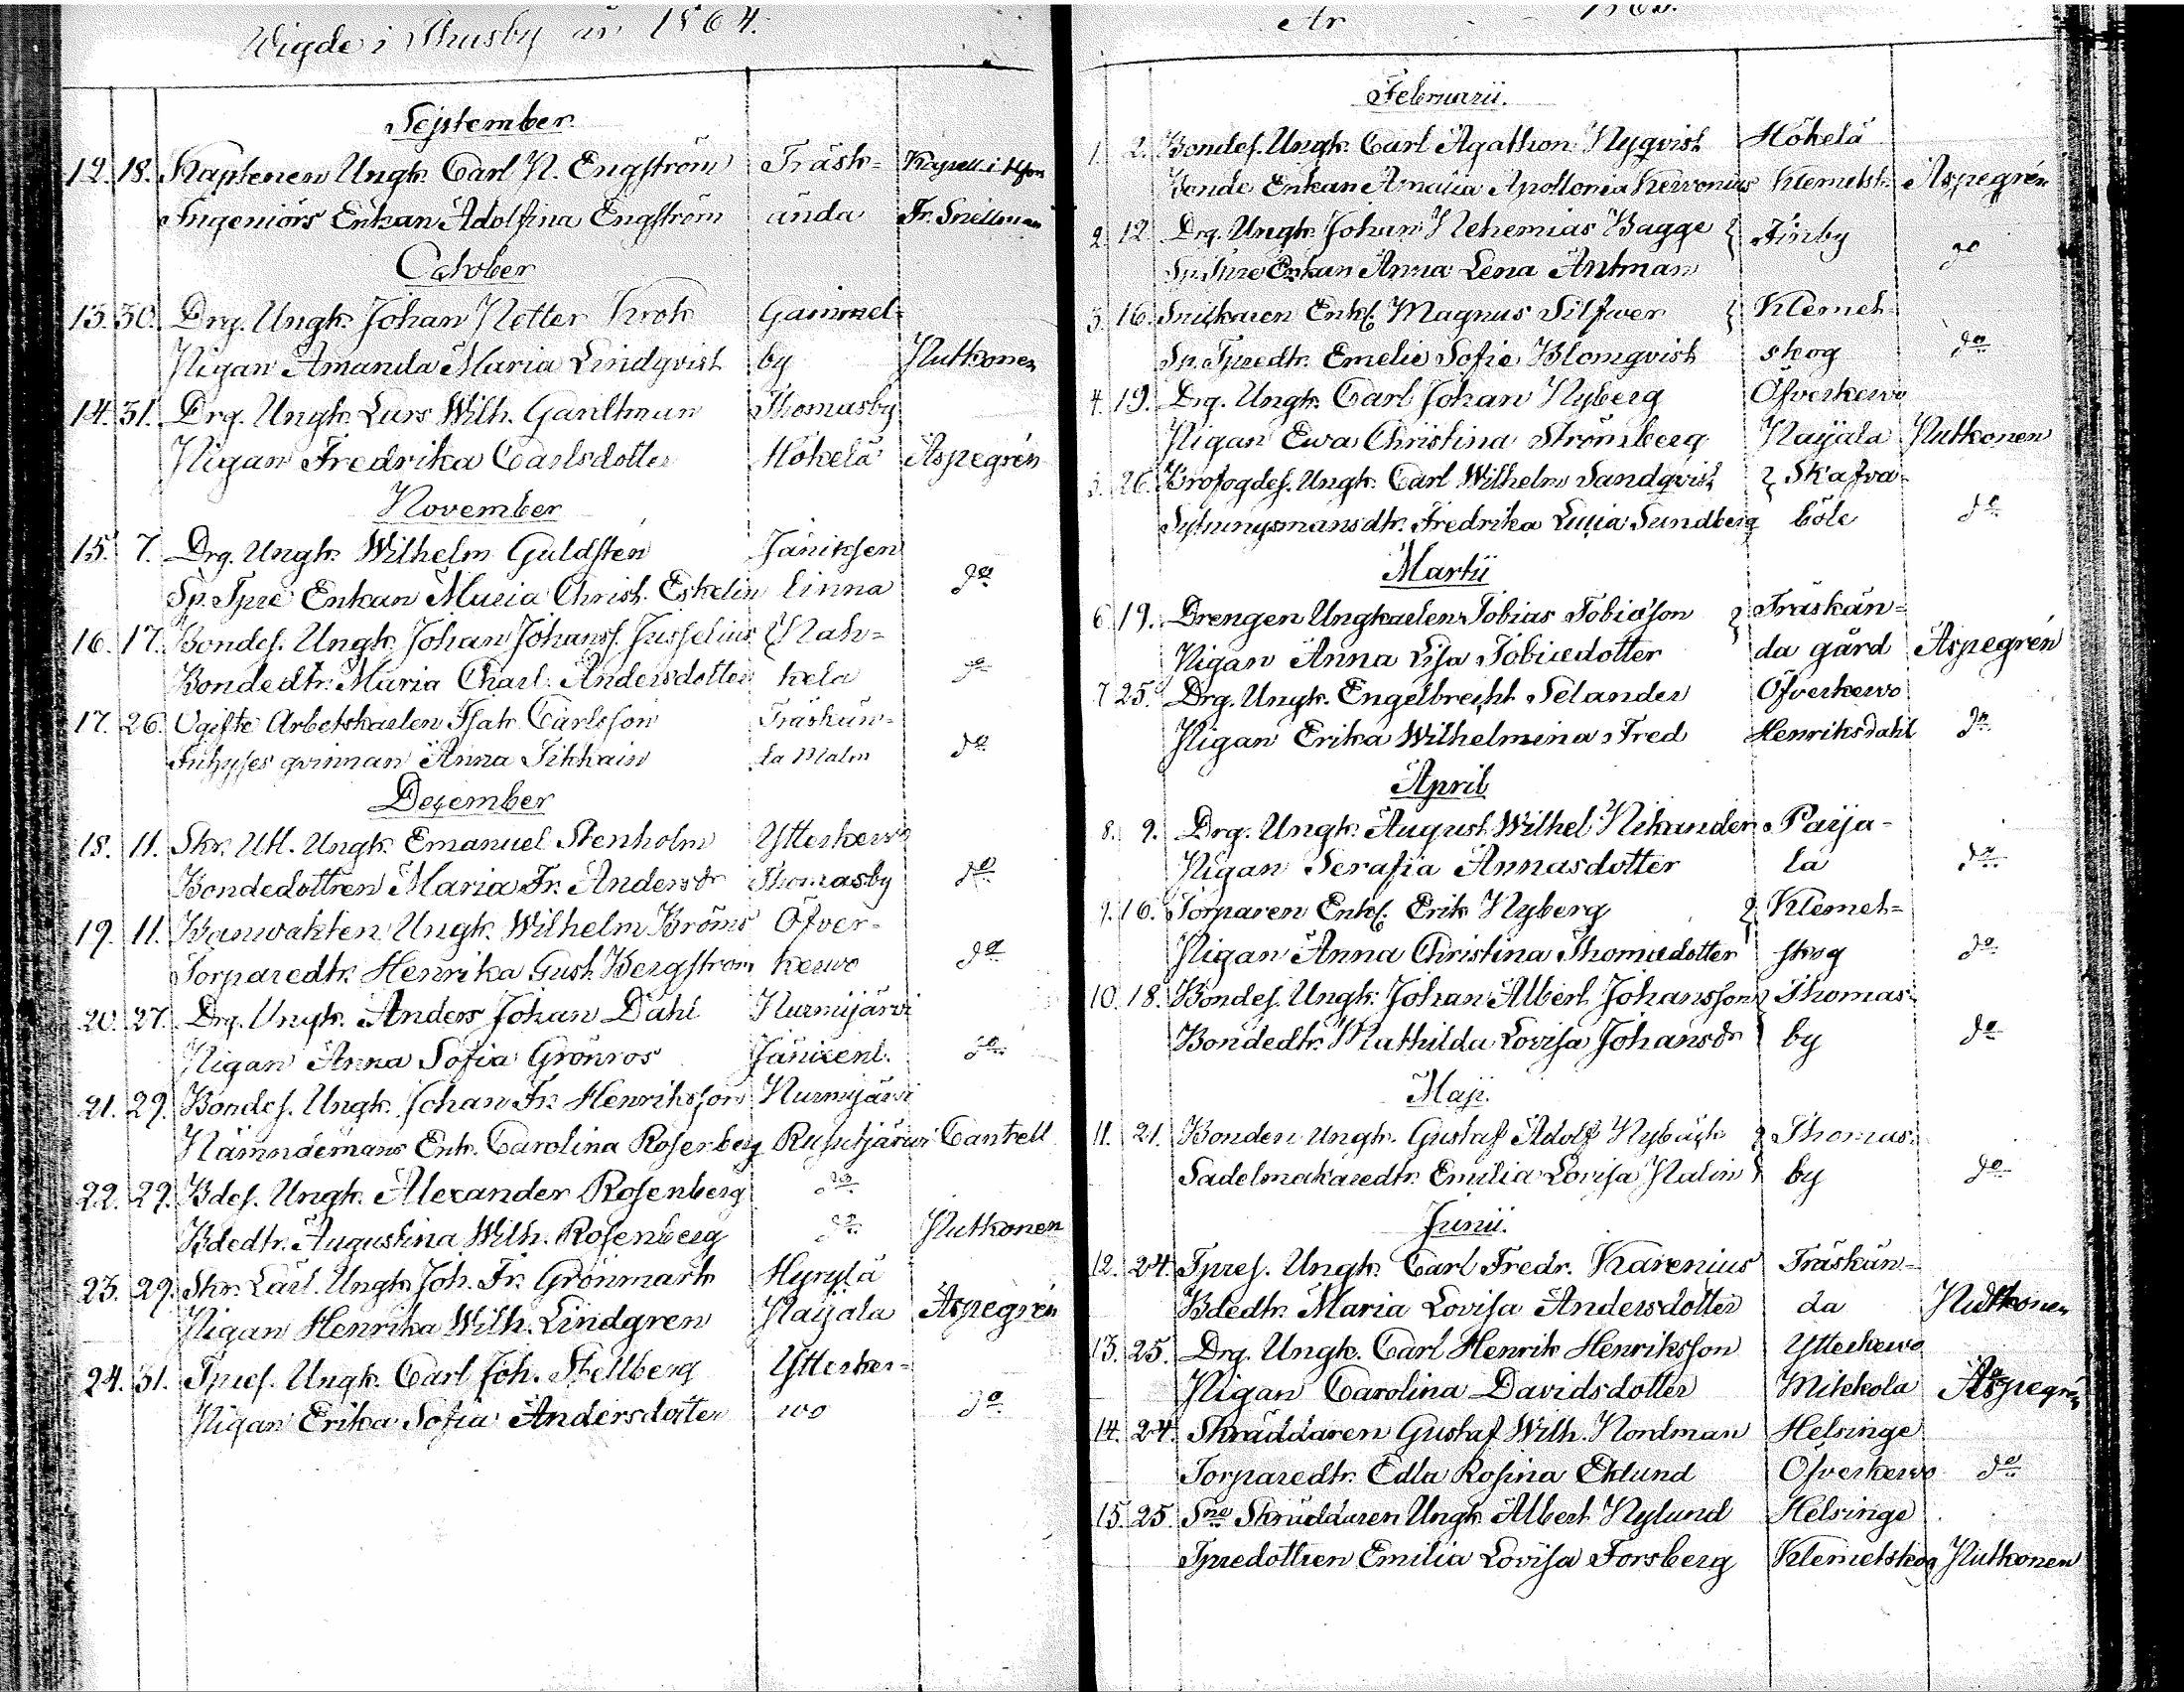 Wigde i Thusby år 1864.
September.
12. 18. Kaptenen Ungk. Carl N. Engström Träsk- Kapell. i Hfors
Ingeniörs Enkan Adolfina Engström ända Fr. Snellman
October
13. 30. Drg. Ungk. Johan Petter Krok Gammel-
Pigan Amanda Maria Lindqvist by Putkonen
14. 31. Drg. Ungk. Lars Wilh. Ganltman Thomasby
Pigan Fredrika Carlsdotter Hökelä Aspegrén
November
15. 7. Drg. Ungk. Wilhelm Guldstén Jäniksen
Sp. Tpre Enkan Maria Christ. Eskelin linna do
16. 17. Bondes. Ungk. Johan Johanss. Jusselius Nah-
Bondedtr. Maria Charl. Andersdotter kela do
17. 26. Ogifte Arbetskarlen Isak Carlsson Träskän-
Inhyses qvinnan Anna Sikkain da Malm do
December
18. 11. Skr. Utl. Ungk. Emanuel Stenholm Ytterkerwo
Bondedottren Maria Fr. Andersdr Thomasby do
19. 11. Banvakten Ungk. Wilhelm Bröms Öfver-
Torparedtr. Henrika Gust. Bergström kerwo do
20. 27. Drg. Ungk. Anders Johan Dahl Nurmijärvi
Pigan Anna Sofia Grönros Jänixenl. do
21. 29. Bondes. Ungk. Johan Fr. Henriksson Nurmijärvi
Nämndemans Enk. Carolina Rosenberg Rusutjärwi Cantell
22. 29. Bdes. Ungk. Alexander Rosenberg do
Bdedtr. Augustina Wilh. Rosenberg do Putkonen
23. 29. Skr. Lärl. Ungk. Joh. Fr. Grönmark Hyrylä
Pigan Henrika Wilh. Lindgren Paijala Aspegrén
24. 31. Tpres. Ungk. Carl Joh. Stellberg Ytterker-
Pigan Erika Sofia Andersdotter wo do
År 1865.
Februarii.
1. 2. Bondes. Ungk. Carl Agathon Nyqvist Hökelä
Bonde Enkan Amalia Apollonia Kervonius Klemetsk. Aspegrén
2. 12. Drg. Ungk. Johan Nehemias Bagge Finby do
Sp. Tpre Enkan Anna Lena Antman
3. 16. Snickaren Enkl. Magnus Silfwer Klemet-
Sp. Tpredtr. Emelie Sofie Blomqvist skog do
4. 19. Drg. Ungk. Carl Johan Nyberg Öfverkerwo
Pigan Ewa Christina Strömberg Paijala Putkonen
5. 26. Brofogdes. Ungk. Carl Wilhelm Sandqvist Skafva-
Sytningsmansdtr. Fredrika Lucia Sundberg böle do
Martii
6. 19. Drengen Ungkarlen Tobias Tobiasson Träskän-
Pigan Anna Lisa Tobiædotter da gård Aspegrén
7 25. Drg. Ungk. Engelbrecht Selander Öfverkerwo
Pigan Erika Wilhelmina Fred Henriksdahl do
April
8. 9. Drg. Ungk. August Wilhel. Nikander Paija-
Pigan Serafia Annasdotter la do
9. 16. Torparen Enkl. Erik Nyberg Klemet-
Pigan Anna Christina Thomædotter skog do
10. 18. Bondes. Ungk. Johan Albert Johansson Thomas-
Bondedtr. Mathilda Lovisa Johansdr by do
Maji.
11. 21. Bonden Ungk. Gustaf Adolf Nybäck Thomas-
Sadelmakaredtr. Emilia Lovisa Malin by do
Junii.
12. 24. Tpres. Ungk. Carl Fredr. Karenius Träskän-
Bdedtr. Maria Lovisa Andersdotter da Putkonen
13. 25. Drg. Ungk. Carl Henrik Henriksson Ytterkerwo
Pigan Carolina Davidsdotter Mikkola Aspegrén
14. 24. Skräddaren Gustaf Wilh. Nordman Helsinge
Torparedtr. Edla Rosina Eklund Öfverkerwo do
15. 25. Sne Skräddaren Ungk. Albert Nylund Helsinge
Tpredottren Emilia Lovisa Forsberg Klemetskog Putkonen